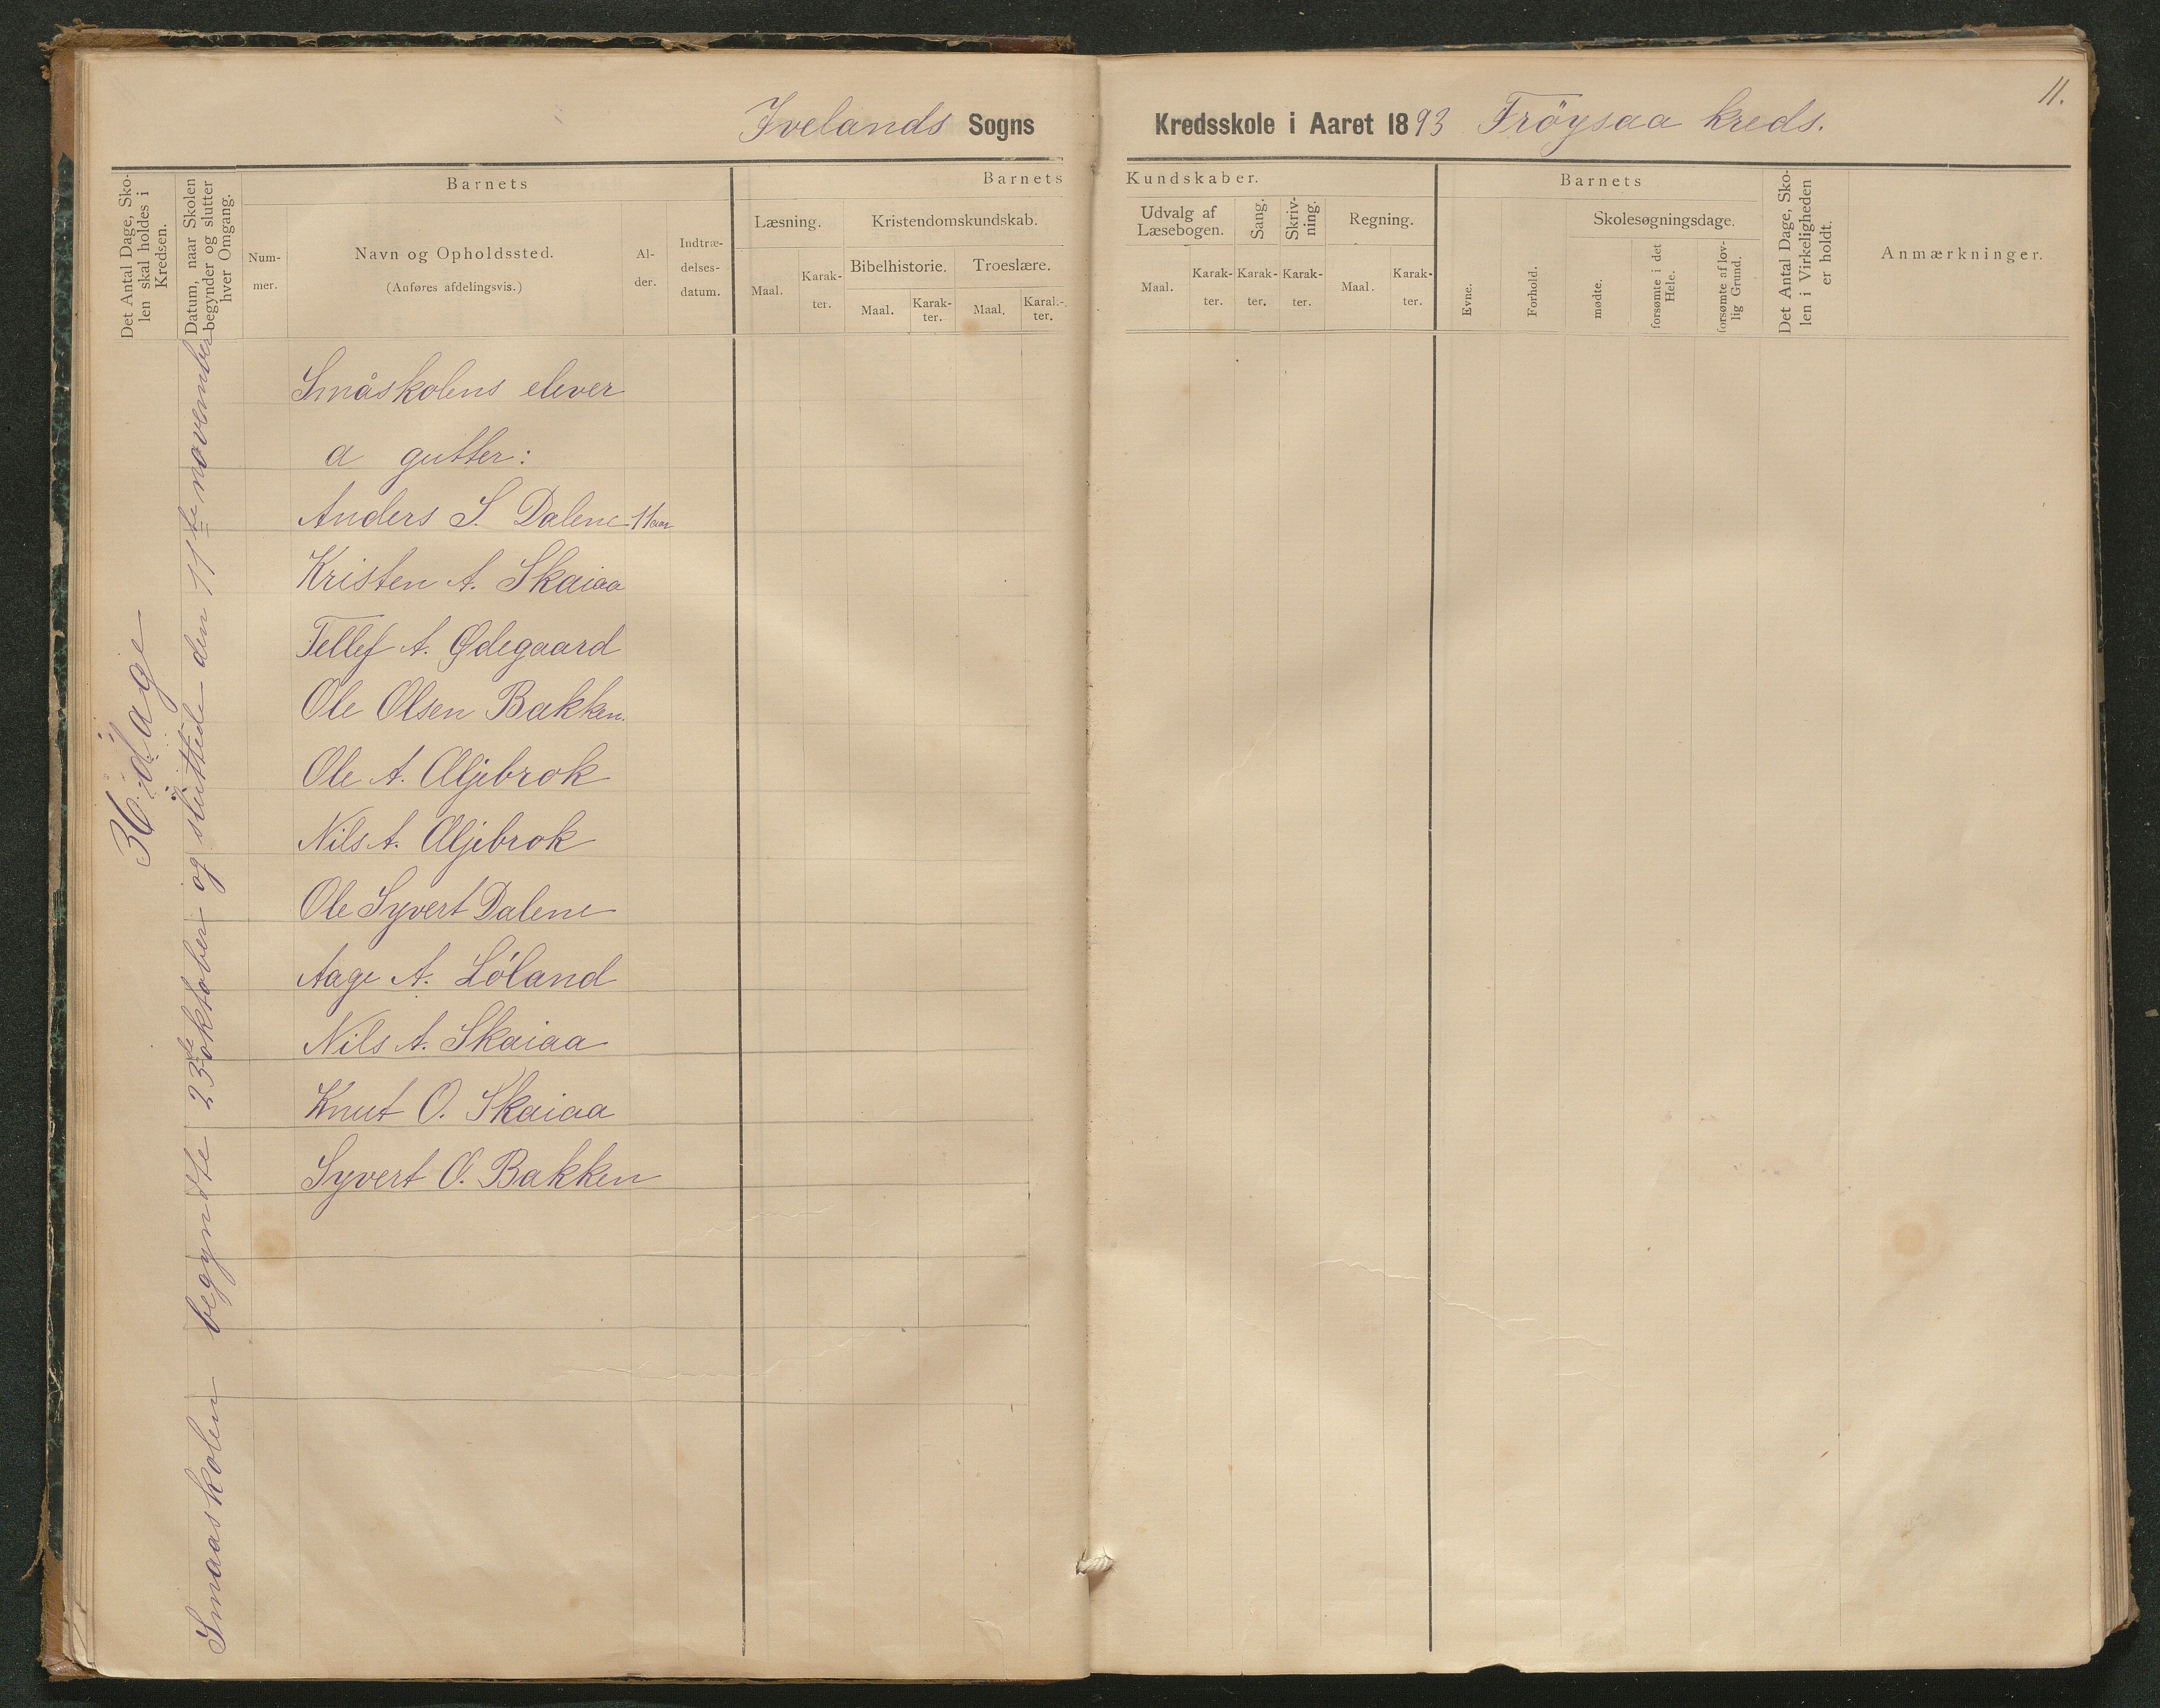 11.
Ivelands Sogns Kredsskole i Aaret 1893 Fröysaa kreds.
Det Antal Dage, Sko-
len skal holdes i
Kredsen.
Datum, naar Skolen
begynder og slutter
hver Omgang.
Barnets
Num-
mer.
Navn og Opholdssted.
(Anføres afdelingsvis.)
Al-
der.
Indtræ-
delses-
datum.
Barnets Kundskaber.
Læsning.
Maal.
Karak-
ter.
Kristendomskundskab.
Bibelhistorie.
Maal.
Karak-
ter.
Troeslære.
Maal.
Karak-
ter.
Udvalg af
Læsebogen.
Maal.
Karak-
ter.
Sang.
Karak-
ter.
Skriv-
ning.
Karak-
ter.
Regning.
Maal.
Karak-
ter.
Barnets
Evne.
Forhold.
Skolesøgningsdage.
mødte.
forsømte i det
Hele.
forsømte af lov-
lig Grund.
Det Antal Dage, Sko-
len i Virkeligheden
er holdt.
Anmærkninger.
36 dage
Smaaskolen begyndte 23de oktober og sluttede den 11te november
Småskolens elever
a gutter:
Anders S. Dalene 11 aar
Kristen A. Skaiaa
Tellef A. Ødegaard
Ole Olsen Bakken.
Ole A. Æljebrok
Nils A. Æljebrok
Ole Syvert Dalene
Aage A. Löland
Nils A. Skaiaa
Knut O. Skaiaa
Syvert O. Bakken